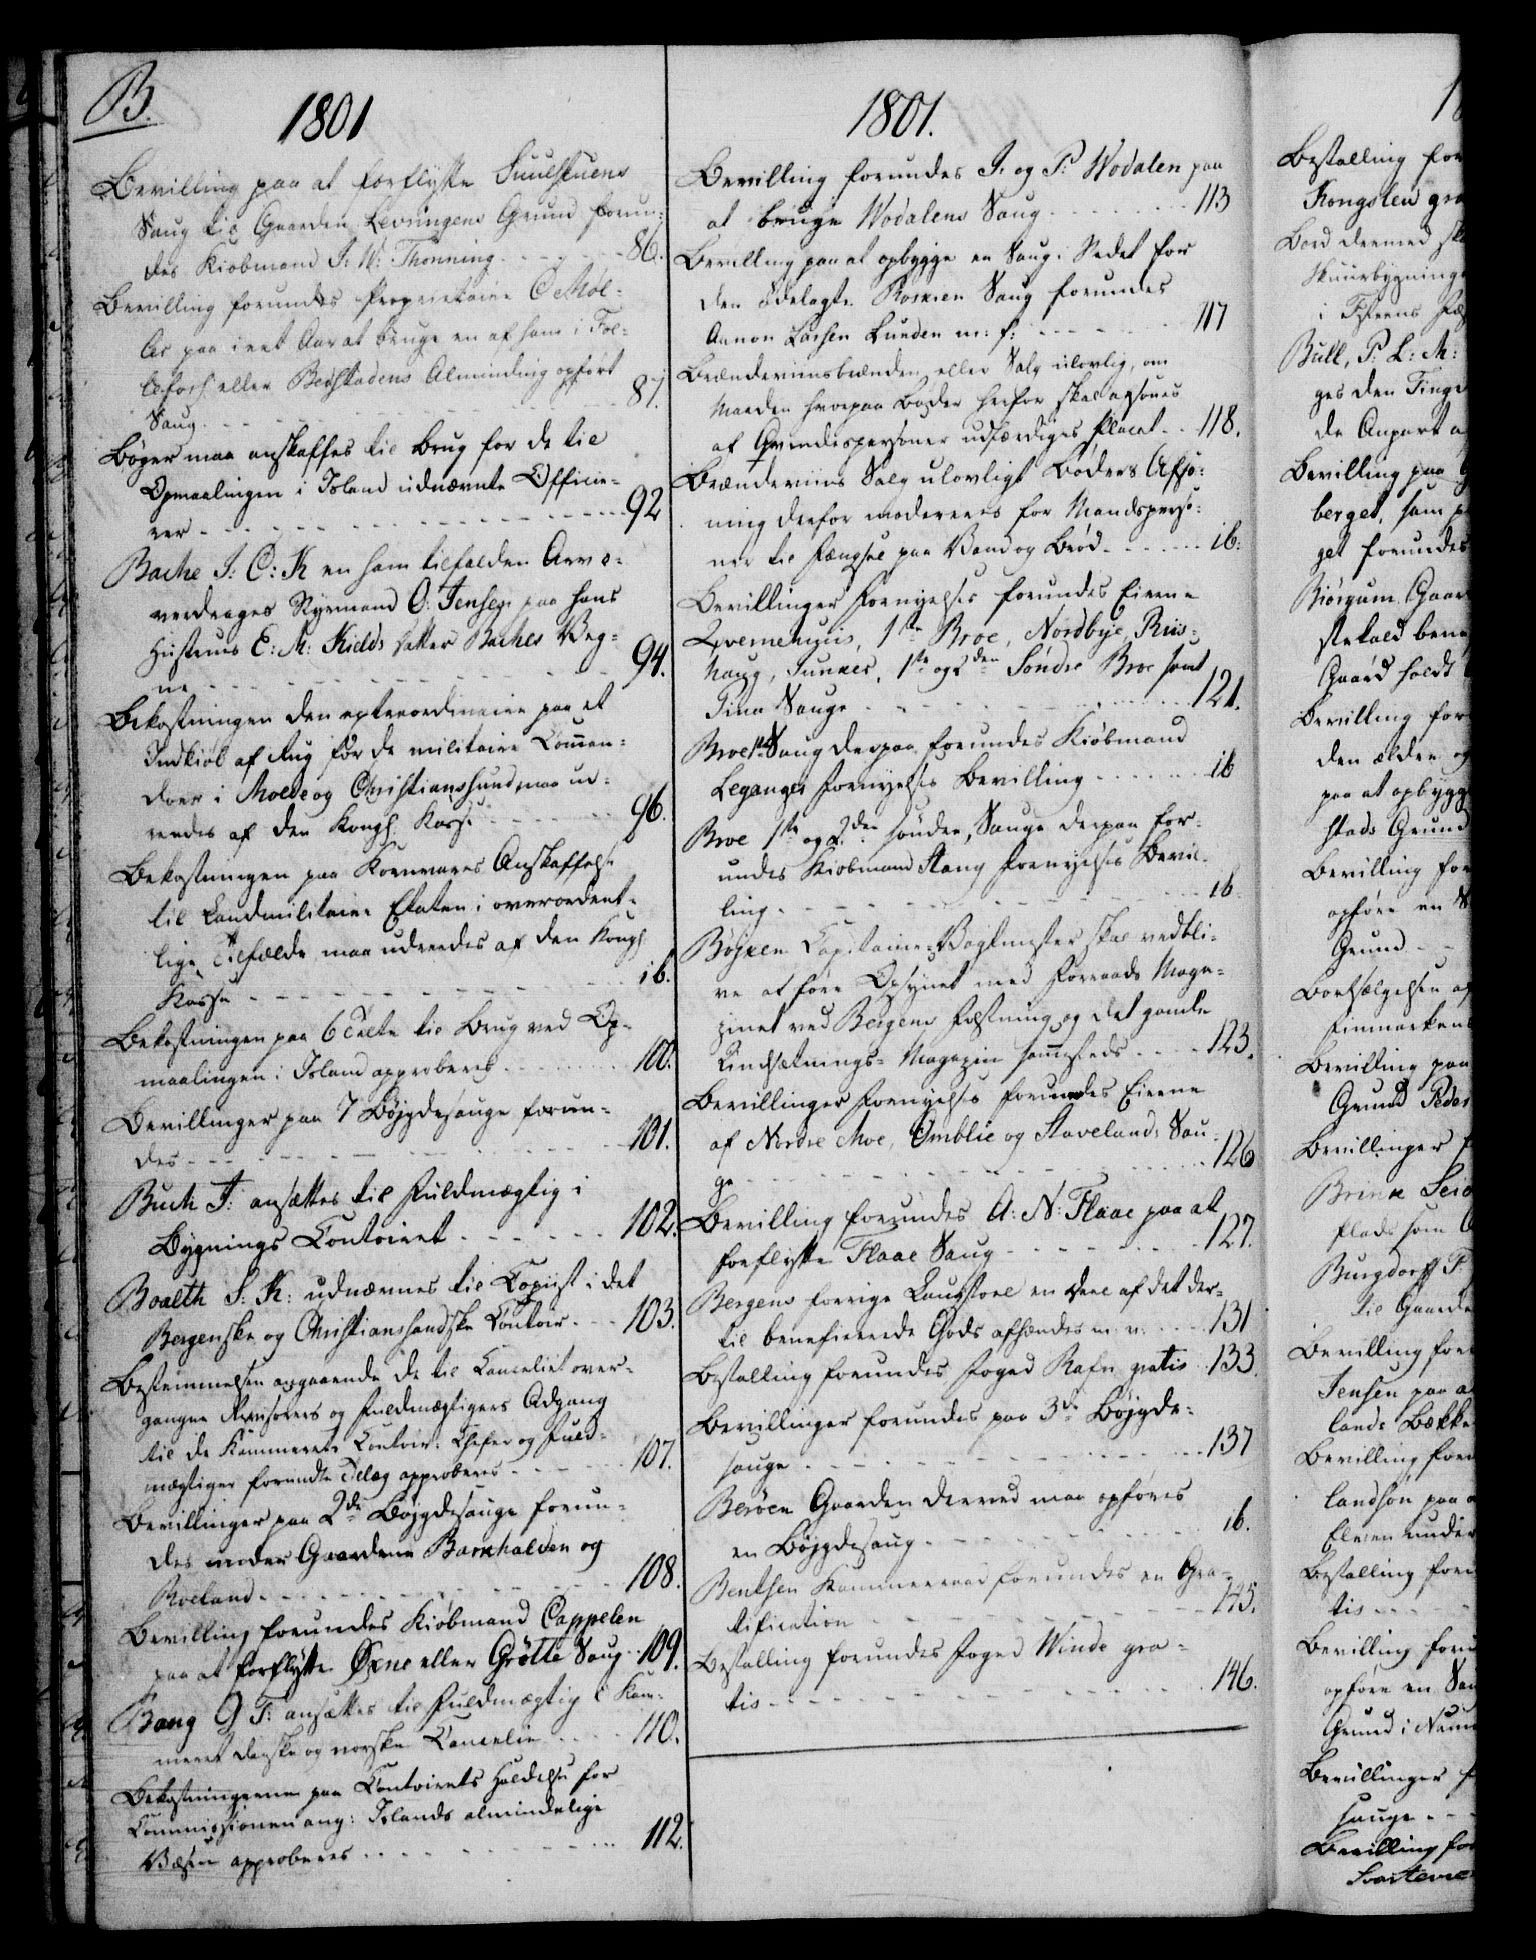 B.
1801
Bevilling paa at forflytte Suulstuens
Saug til Gaarden Levringens Grund forun-
des Kiøbmand I: W: Thonning 86.
Bevilling forundes Proprietaire C Møl-
ler paa i eet Aar at bruge en af ham i Fol-
lefors eller Bedstadens Alminding opført
Saug 87.
Bøger maa anskaffes til Brug for de til
Opmaalingen i Island udnævnte Officie-
rer 92
Bache I: C: K en ham tilfalden Arv o-
verdrages Styrmand O: Jensen paa hans
Hustrues E: M: Kields datter Baches Veg-
ne 94.
Bekostningen den extraordinaire paa et
Indkiøb af Rug for de militaire Comman-
doer i Molde og Christianssund maa ud-
redes af den Kongl: Kasse 96.
Bekostningen paa Kornvares Anskaffelse
til Landmilitaire Etaten i overordent-
lige Tilfælde maa udredes af den Kongl
Kasse ib.
Bekostningen paa 6 Telte til Brug ved Op-
maalingen i Island approberes 100.
Bevillinger paa 7 Bøjgdesauge forun-
des 101.
Buch J: ansættes til Fuldmægtig i
Bygnings Contoiret 102.
Boalth S: K: udnævnes til Copiist i det
Bergenske og Christianssandske Contoir 103.
Bestemmelsen angaaende de til Cancelliet over-
gangne Revisorers og Fuldmægtigers Adgang
til de Kammerets Contoir-Chefer og Fuld-
mægtiger forundte Tillæg approberes 107.
Bevillinger paa 2de Bøjgdesauge forun-
des under Gaardene Barkhalden og
Roeland 108.
Bevilling forundes Kiøbmand Cappelen
paa at forflytte Øxne eller Grøtte Saug 109.
Bang G F: ansættes til Fuldmægtig i Kam-
meret danske og norske Cancelie 110.
Bekostningerne paa Contoirets Holdelse for
Commissionen ang: Islands almindelige
Væsen approberes 112.
1801.
Bevilling forundes I. og P: Wodalen paa
at bruge Wodalens Saug 113
Bevilling paa at opbygge en Saug i Stedet for
den ødelagte Saug forundes
Lassen Lunden m: f: 117
Brændeviinsbrænden, eller Salg ulovlig, om
Maaden hvorpaa Bøder herfor skal afsones
af Qvindespersoner udfærdiges Placat 118.
Brændeviins Salg ulovligt Bøders Afso-
ning derfor modereres for Mandsperso-
ner til Fængsel paa Vand og Brød ib:
Bevillinger Fornyelses forundes Eierne
Qvernehuus, 1ste Broe, Nordbye, Riis-
haug, Junker, 1ste og 2den Søndre Broe samt
Tinn Sauge 121.
Broe Saug derpaa forundes Kiøbmand
Leganger Fornyelses Bevilling ib
Broe 1ste og 2den søndre, Sauge derpaa for-
undes Kiøbmand Stang Fornyelses Bevil-
ling ib
Bøjsen Capitaine-Vagtmester skal vedbli-
ve at føre Opsynet med Forraads Maga-
zinet ved Bergens Fæstning og det gamle
Undsætnings-Magazin sammesteds 123.
Bevillinger Fornyelses forundes Eierne
af Nordre Moe, Omblie og Stavelands Sau-
ge 126
Bevilling forundes A: N: Flaae paa at
forflytte Flaae Saug 127.
Bergens forrige Laugstoel en Deel af det der-
til beneficerede Gods afhændes m. v. 131
Bestalling forundes Foged Rafn gratis 133.
Bevillinger forundes paa 3de Bøjgde-
sauge 137
Berøen Gaarden derved maa opføres
en Bøjgdesaug ib.
Bentsen Kammerraad forundes en Gra-
tification 145.
Bestalling forundes Foged Winde gra-
tis 146.
Bestalling for
Kongsten gra
Bord dermed
Skuurbygning
i
Bull, P: L: M:
ges den
de Anpart a
Bevilling paa
berget, som
get forundes
Biørgum Gaard
Gaard holdt
Bevilling for
den ældre og
paa at opbygg
stads Grund
Bevilling for
opføre en
Grund
Bortsælgelsen af
Finmarkens
Bevilling paa
Grund Peder
Bevillinger f
Brink Seid
plads som
Burgdorff P:
til Gaarde
Bevilling for
Jensen paa a
lands Bække
Bevilling foru
landsøn paa
Elven under
Bestalling foru
tis
Bevilling foru
opføre en Sau
Grund i
Bevillinger f
sauge
Bevilling for